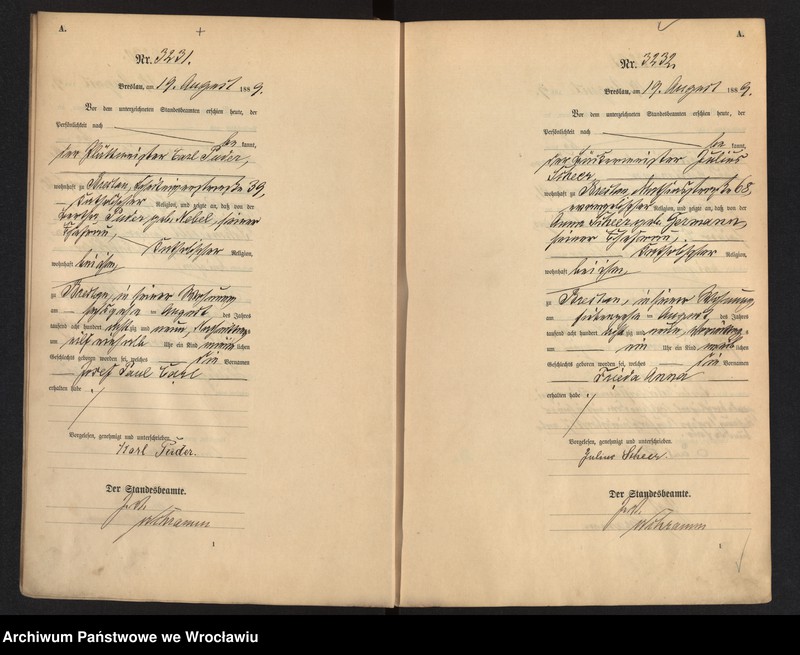 A.
Nr. 3231.
Breslau, am 19. August 1889.
Vor dem unterzeichneten Standesbeamten erschien heute, der
Persönlichkeit nach be kannt,
der Plättmeister Carl Puder,
wohnhaft zu Breslau, 39,
katholischer Religion, und zeigte an, daß von der
Bertha Puder geb. Nebel, seiner
Ehefrau,
katholischer Religion,
wohnhaft bei ihm,
zu Breslau, in seiner Wohnung
am sechszehn ten August des Jahres
tausend acht hundert acht zig und neun, Nachmittags
um elf einhalb Uhr ein Kind männ lichen
Geschlechts geboren worden sei, welches die Vornamen
Josef Paul Carl
erhalten habe
Vorgelesen, genehmigt und unterschrieben
Karl Puder.
Der Standesbeamte.
J. V.
Schramm
1
A.
Nr. 3232.
Breslau, am 19. August 1889.
Vor dem unterzeichneten Standesbeamten erschien heute, der
Persönlichkeit nach be kannt,
der Julius
Scheer
wohnhaft zu Breslau, Matthiasstraße 68,
evangelischer Religion, und zeigte an, daß von der
Anna Scheer geb. Germann,
seiner Ehefrau,
katholischer Religion,
wohnhaft bei ihm,
zu Breslau, in seiner Wohnung
am siebenzehn ten August des Jahres
tausend acht hundert acht zig und neun, Vormittags
um ein Uhr ein Kind weib lichen
Geschlechts geboren worden sei, welches die Vornamen
Frieda Anna
erhalten habe
Vorgelesen, genehmigt und unterschrieben
Julius Scheer.
Der Standesbeamte.
J. V.
Schramm
1
Archiwum Państwowe we Wrocławiu